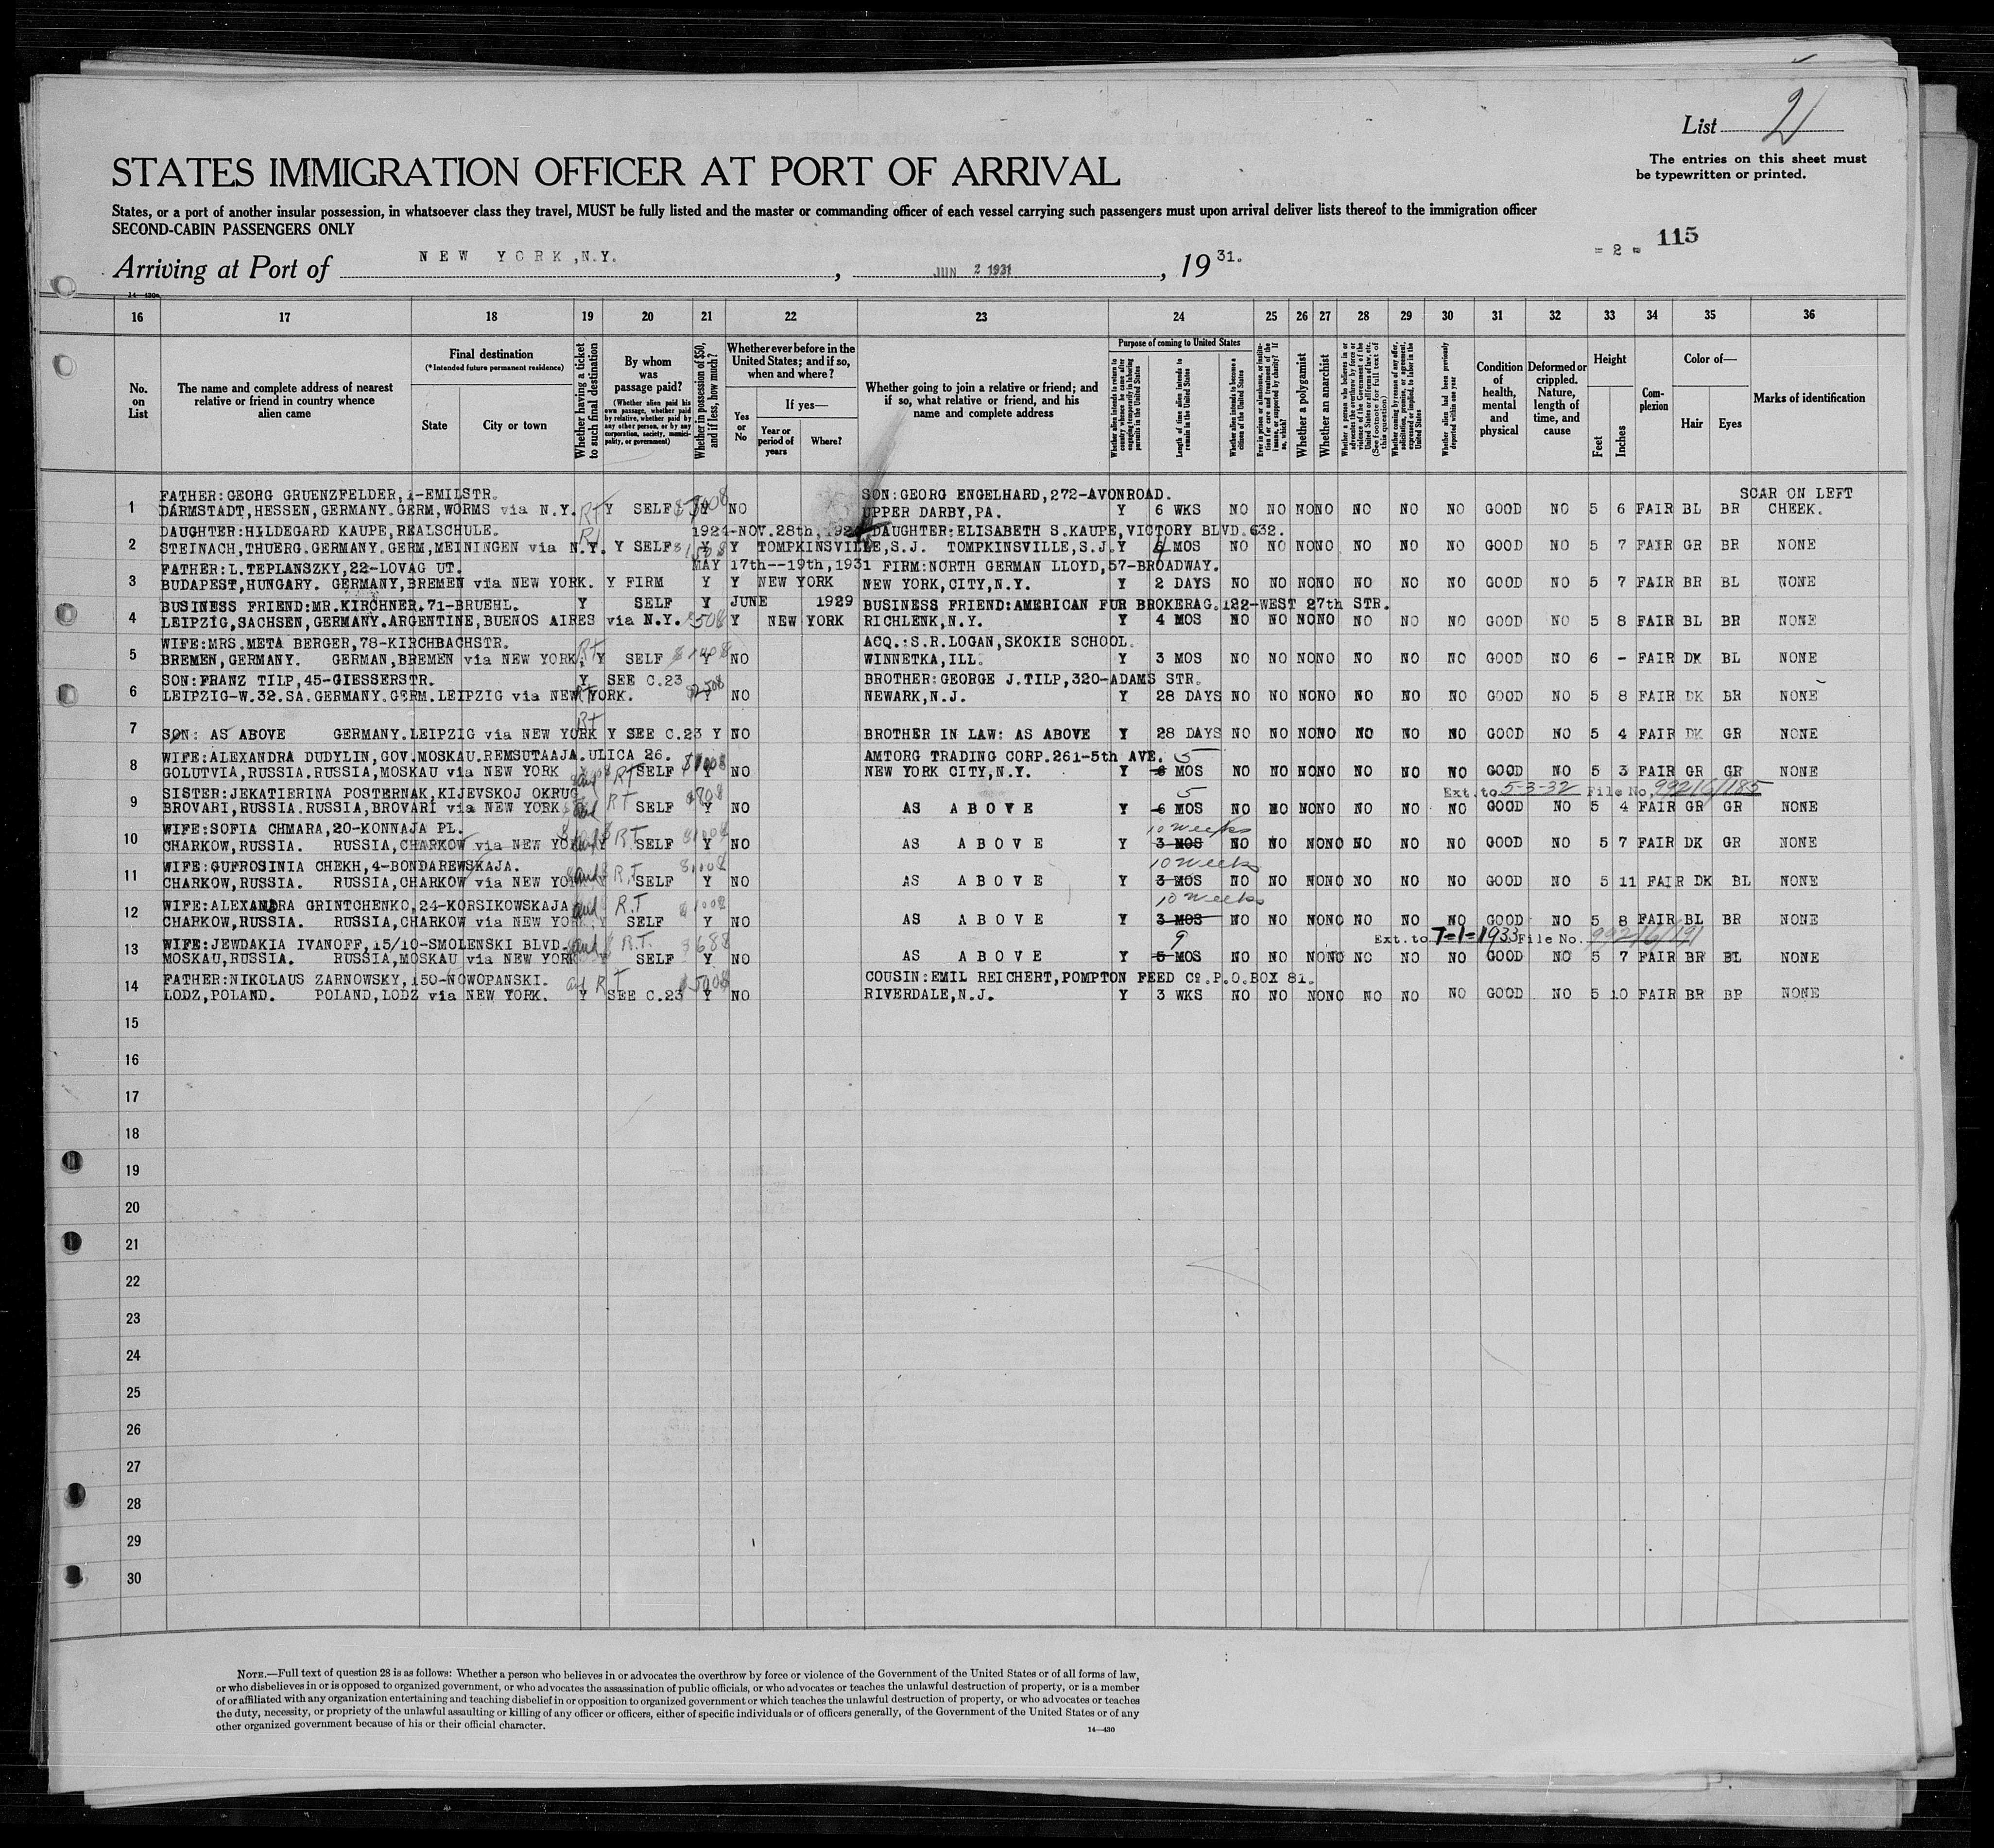 List 2
The entries on this sheet must
be typewritten or printed.
STATES IMMIGRATION OFFICER AT PORT OF ARRIVAL
States, or a port of another insular possession, in whatsoever class they travel, MUST be fully listed and the master or commanding officer of each vessel carrying such passengers must upon arrival deliver lists thereof to the immigration officer
SECOND-CABIN PASSENGERS ONLY
= 2 = 115
Arriving at Port of NEW YORK, N.Y. , JUN 2 1931 , 19 31.
14-430a
16 17 18 19 20 21 22 23 24 25 26 27 28 29 30 31 32 33 34 35 36
No. on List
The name and complete address of nearest relative or friend in country whence alien came
Final destination
(*Intended future permanent residence)
State
City or town
Whether having a ticket to such final destination
By whom was passage paid?
(Whether alien paid his own passage, whether paid by relative, whether paid by any other person, or by any corporation, society, municipality, or government)
Whether in possession of $50, and if less, how much?
Whether ever before in the United States; and if so, when and where?
Yes or No
If yes—
Year or period of years
Where?
Whether going to join a relative or friend; and if so, what relative or friend, and his name and complete address
Purpose of coming to United States
Whether alien intends to return to country whence he came after engaging temporarily in laboring pursuits in the United States
Length of time alien intends to remain in the United States
Whether alien intends to become a citizen of the United States
Ever in prison or almshouse, or institution for care and treatment of the insane, or supported by charity? If so, which?
Whether a polygamist
Whether an anarchist
Whether a person who believes in or advocates the overthrow by force or violence of the Government of the United States or all forms of law, etc. (See footnote for full text of this question)
Whether coming by reason of any offer, solicitation, promise, or agreement, expressed or implied, to labor in the United States
Whether alien had been previously deported within one year
Condition of health, mental and physical
Deformed or crippled. Nature, length of time, and cause
Height
Feet
Inches
Complexion
Color of—
Hair
Eyes
Marks of identification
FATHER:GEORG GRUENZFELDER,1-EMILSTR. SON:GEORG ENGELHARD,272-AVONROAD. SCAR ON LEFT
1 DARMSTADT,HESSEN,GERMANY.GERM,WORMS via N.Y. RT Y SELF Y NO UPPER DARBY,PA. Y 6 WKS NO NO NONO NO NO NO GOOD NO 5 6 FAIR BL BR CHEEK.
DAUGHTER:HILDEGARD KAUPE,REALSCHULE. 1924-NOV.28th, DAUGHTER:ELISABETH S.KAUPE,VICTORY BLVD.632.
2 STEINACH,THUERG.GERMANY.GERM,MEININGEN via N.Y. Y SELF Y Y TOMPKINSVILLE,S.J. TOMPKINSVILLE,S.J. Y MOS NO NO NONO NO NO NO GOOD NO 5 7 FAIR GR BR NONE
FATHER:L.TEPLANSZKY,22-LOVAG UT. MAY 17th--19th,1931 FIRM:NORTH GERMAN LLOYD,57-BROADWAY.
3 BUDAPEST,HUNGARY. GERMANY,BREMEN via NEW YORK. Y FIRM Y Y NEW YORK NEW YORK,CITY,N.Y. Y 2 DAYS NO NO NONO NO NO NO GOOD NO 5 7 FAIR BR BL NONE
BUSINESS FRIEND:MR.KIRCHNER.71-BRUEHL. Y SELF Y JUNE 1929 BUSINESS FRIEND:AMERICAN FUR BROKERAG.122-WEST 27th STR.
4 LEIPZIG,SACHSEN,GERMANY.ARGENTINE,BUENOS AIRES via N.Y. Y NEW YORK RICHLENK,N.Y. Y 4 MOS NO NO NONO NO NO NO GOOD NO 5 8 FAIR BL BR NONE
WIFE:MRS.META BERGER,78-KIRCHBACHSTR. ACQ.:S.R.LOGAN,SKOKIE SCHOOL.
5 BREMEN,GERMANY. GERMAN,BREMEN via NEW YORK, RT Y SELF Y NO WINNETKA,ILL. Y 3 MOS NO NO NONO NO NO NO GOOD NO 6 - FAIR DK BL NONE
SON:FRANZ TILP,45-GIESSERSTR. Y SEE C.23 BROTHER:GEORGE J.TILP,320-ADAMS STR.
6 LEIPZIG-W.32.SA.GERMANY.GERM.LEIPZIG via NEW YORK. Y NO NEWARK,N.J. Y 28 DAYS NO NO NONO NO NO NO GOOD NO 5 8 FAIR DK BR NONE
7 SON: AS ABOVE GERMANY.LEIPZIG via NEW YORK RT Y SEE C.23 Y NO BROTHER IN LAW: AS ABOVE Y 28 DAYS NO NO NONO NO NO NO GOOD NO 5 4 FAIR DK GR NONE
WIFE:ALEXANDRA DUDYLIN,GOV.MOSKAU.REMSUTAAJA.ULICA 26. AMTORG TRADING CORP.261-5th AVE. 5
8 GOLUTVIA,RUSSIA.RUSSIA,MOSKAU via NEW YORK Y RT SELF Y NO NEW YORK CITY,N.Y. Y 6 MOS NO NO NONO NO NO NO GOOD NO 5 3 FAIR GR GR NONE
SISTER:JEKATIERINA POSTERNAK,KIJEVSKOJ OKRUG 5 Ext. to 5-3-32 File No. 992/6/185
9 BROVARI,RUSSIA.RUSSIA,BROVARI via NEW YORK RT SELF Y NO AS ABOVE Y 6 MOS NO NO NONO NO NO NO GOOD NO 5 4 FAIR GR GR NONE
WIFE:SOFIA CHMARA,20-KONNAJA PL. 10 weeks
10 CHARKOW,RUSSIA. RUSSIA,CHARKOW via NEW YORK Y RT SELF Y NO AS ABOVE Y 3 MOS NO NO NONO NO NO NO GOOD NO 5 7 FAIR DK GR NONE
WIFE:GUFROSINIA CHEKH,4-BONDAREWSKAJA. 10 weeks
11 CHARKOW,RUSSIA. RUSSIA,CHARKOW via NEW YORK Y R.T SELF Y NO AS ABOVE Y 3 MOS NO NO NONO NO NO NO GOOD NO 5 11 FAIR DK BL NONE
WIFE:ALEXANDRA GRINTCHENKO,24-KORSIKOWSKAJA 10 weeks
12 CHARKOW,RUSSIA. RUSSIA,CHARKOW via NEW YORK. Y R.T SELF Y NO AS ABOVE Y 3 MOS NO NO NONO NO NO NO GOOD NO 5 8 FAIR BL BR NONE
WIFE:JEWDAKIA IVANOFF,15/10-SMOLENSKI BLVD. 9 Ext. to 7-1-1933 File No. 992/6/191
13 MOSKAU,RUSSIA. RUSSIA,MOSKAU via NEW YORK Y R.T. SELF Y NO AS ABOVE Y 5 MOS NO NO NONO NO NO NO GOOD NO 5 7 FAIR BR BL NONE
FATHER:NIKOLAUS ZARNOWSKY,150-NOWOPANSKI. COUSIN:EMIL REICHERT,POMPTON FEED Co.P.O.BOX 81.
14 LODZ,POLAND. POLAND,LODZ via NEW YORK. RT Y SEE C.23 Y NO RIVERDALE,N.J. Y 3 WKS NO NO NONO NO NO NO GOOD NO 5 10 FAIR BR BR NONE
15
16
17
18
19
20
21
22
23
24
25
26
27
28
29
30
NOTE.—Full text of question 28 is as follows: Whether a person who believes in or advocates the overthrow by force or violence of the Government of the United States or of all forms of law,
or who disbelieves in or is opposed to organized government, or who advocates the assassination of public officials, or who advocates or teaches the unlawful destruction of property, or is a member
of or affiliated with any organization entertaining and teaching disbelief in or opposition to organized government or which teaches the unlawful destruction of property, or who advocates or teaches
the duty, necessity, or propriety of the unlawful assaulting or killing of any officer or officers, either of specific individuals or of officers generally, of the Government of the United States or of any
other organized government because of his or their official character.
14—430